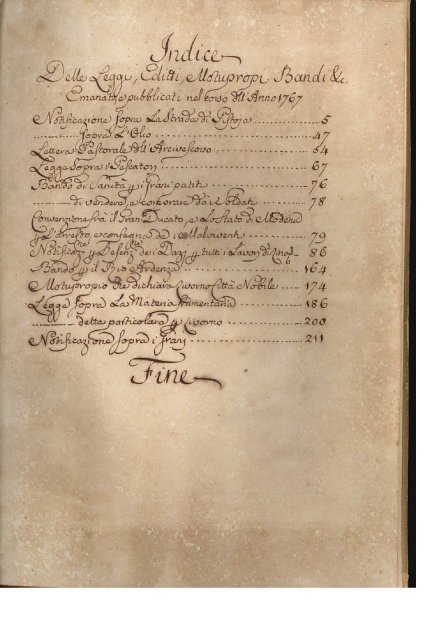 Indice
Delle Leggi, Editti, Motupropi Bandi &c.
Emanati, e pubblicati nel corso dll' Anno 1767
Notificazione sopra la Strada di Pistoja 5
sopra l'Olio 47
Lettera Pastorale dll' Arcivescovo 54
Legge Sopra i Pescatori 67
Bando di Sanità p i Grani patiti 76
di vendere, e comprare dai Soldati 78
Convenzione frà il Gran Ducato, e lo Stato di Modena
p l'Arresto, e consegna de i Malviventi 79
Notificaz.ne p l'Esenz.ne dei Dazj p tutti i Lavori di 86
Bando p il Ardenza 164
Motuproprio che dichiara Livorno Città Nobile 174
Legge Sopra la Materia frumentaria 186
detta particolare p Livorno 200
Notificazione sopra i Grani 211
Fine